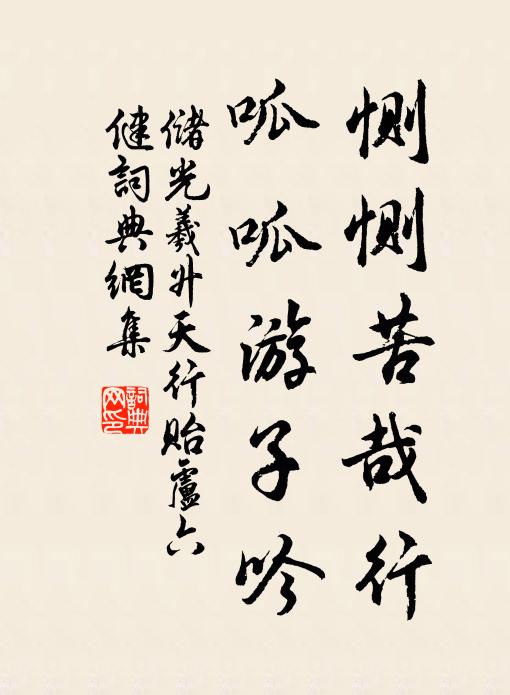 惻惻苦哉行
呱呱游子吟
儲光羲升天行貽盧六
健詞典網集
詞典
网印